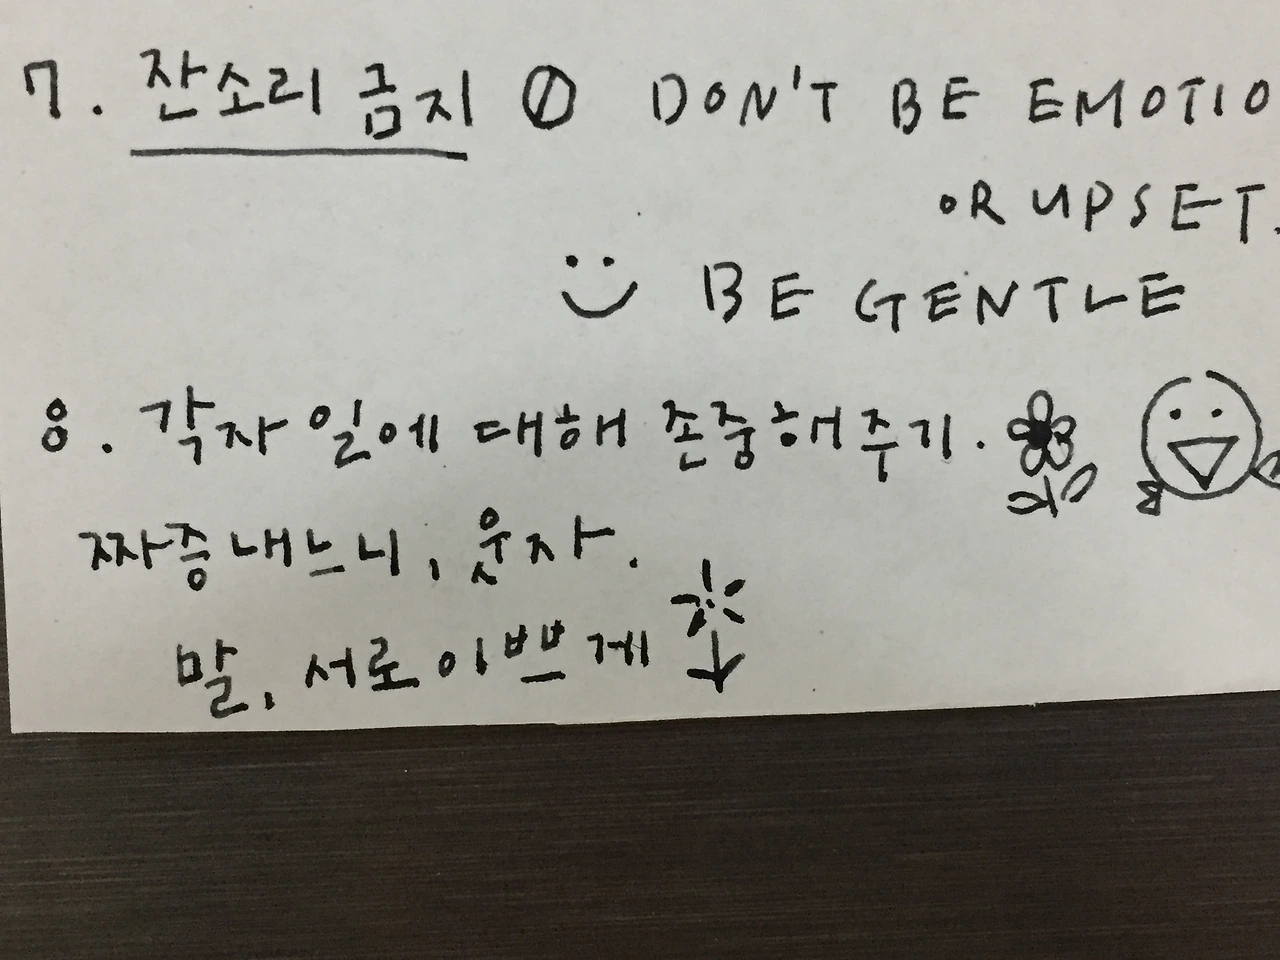 7. 잔소리 금지 DON'T BE EMOTIO
OR UPSET.
BE GENTLE
8. 각자 일에 대해 존중해주기.
짜증내느니, 웃자.
말, 서로 이쁘게